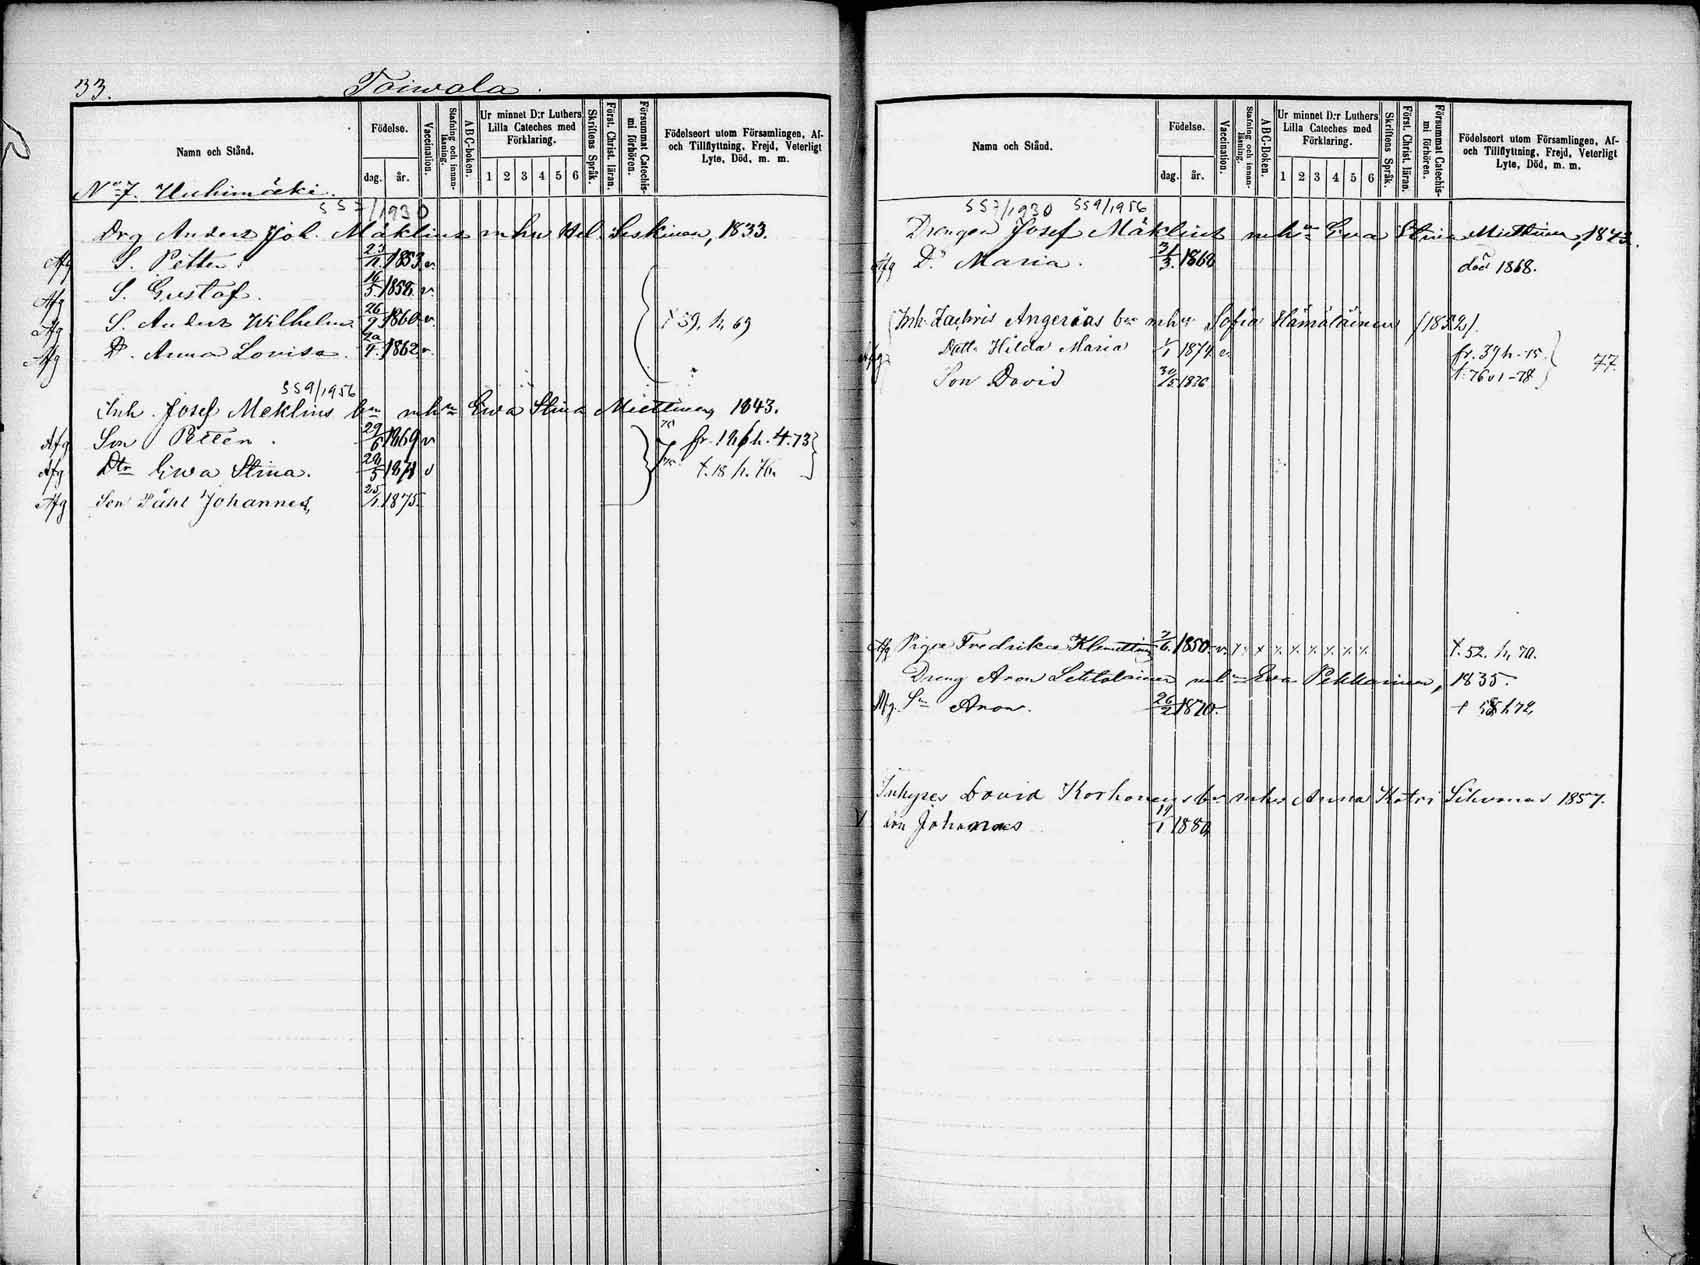 33. Toiwala.
Namn och Stånd.
Födelse.
dag. år.
Vaccination.
Stafning och innan-läsning.
ABC-boken.
Ur minnet D:r Luthers Lilla Cateches med Förklaring.
1 2 3 4 5 6
Skriftens Språk.
Först. Christ. läran.
Försummat Catechis-mi förhören.
Födelseort utom Församlingen, Af- och Tillflyttning, Frejd, Veterligt Lyte, Död, m. m.
No 7.
557/1930
Drg Anders Joh. Mäklins mhu Hel. Leskinen, 1833.
Afg S. Petter. 1853 v.
Afg S. Gustaf. 16/5 1858 v.
Afg S. Anders Wilhelm 26/9 1860 v. † 59, h, 69
Afg D. Anna Lovisa. 1862 v.
559/1956
Inh. Josef Meklins bm mhu Ewa Stina Miettinen 1843.
Afg Son Petter. 29/6 1869 v fr. h. 4. 73
Afg Dtr Ewa Stina. 28/5 1871 v t. 18 h. 76
Afg Son Påhl Johannes, 25/1 1875.
Namn och Stånd.
Födelse.
dag. år.
Vaccination.
Stafning och innan-läsning.
ABC-Boken.
Ur minnet D:r Luthers Lilla Cateches med Förklaring.
1 2 3 4 5 6
Skriftens Språk.
Först. Christ. läran.
Försummat Catechis-mi förhören.
Födelseort utom Församlingen, Af- och Tillflyttning, Frejd, Veterligt Lyte, Död, m. m.
557/1930 559/1956
Drengen Josef Mäklins mhu Ewa Stina Miettinen, 1843.
Afg D. Maria. 3/3 1868 död 1868.
Inh. Zachris Angerias bm mhu Sofia Hämäläinen (1852).
Dottr Hilda Maria 1/1 1874 v. fr. 39 h - 75
Son David 30/5 1876 t. 76 - 78. 77.
Afg Pigan Fredrika Klemettinen 7/6 1850 v. x x x x x x x x t. 52. h, 70.
Dreng Aron mhu Ewa Pekkarinen, 1835.
Afg. Sn Aron. 26/2 1870. t 58 h 72
Inhyses David Korhonens bm mhu Anna Katri Silvonen 1857.
son Johannes 14/1 1880